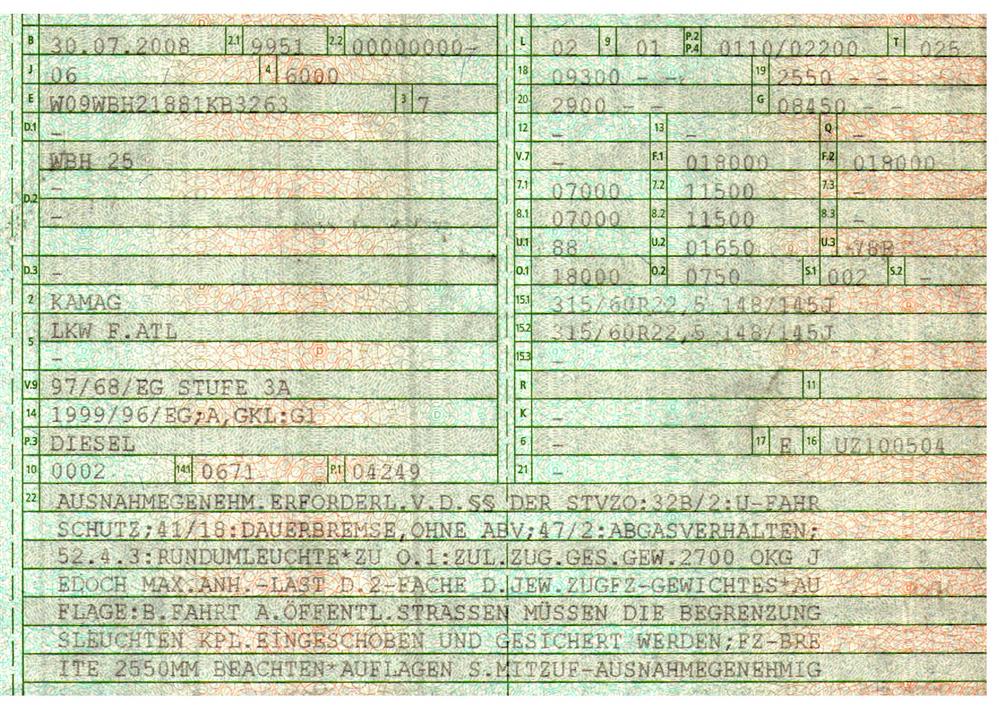 B 30.07.2008 2.1 9951 2.2 00000000-
J 06 4 6000
E W09WBH21881KB3263 3 7
D.1 -
D.2 WBH 25
-
-
D.3 -
2 KAMAG
5 LKW F.ATL
-
V.9 97/68/EG STUFE 3A
14 1999/96/EG;A,GKL:G1
P.3 DIESEL
10 0002 14.1 0671 P.1 04249
L 02 9 01 P.2 P.4 0110/02200 T 025
18 09300 - - 19 2550 - -
20 2900 - - G 08450 - -
12 - 13 - Q -
V.7 - F.1 018000 F.2 018000
7.1 07000 7.2 11500 7.3 -
8.1 07000 8.2 11500 8.3 -
U.1 88 U.2 01650 U.3 78R
O.1 18000 O.2 0750 S.1 002 S.2 -
15.1 315/60R22,5 148/145J
15.2 315/60R22,5 148/145J
15.3 -
R 11
K -
6 - 17 E 16 UZ100504
21 -
22 AUSNAHMEGENEHM.ERFORDERL.V.D.§§ DER STVZO:32B/2:U-FAHR
SCHUTZ;41/18:DAUERBREMSE,OHNE ABV;47/2:ABGASVERHALTEN;
52.4.3:RUNDUMLEUCHTE*ZU O.1:ZUL.ZUG.GES.GEW.2700 OKG J
EDOCH MAX.ANH.-LAST D.2-FACHE D.JEW.ZUGFZ-GEWICHTES*AU
FLAGE:B.FAHRT A.ÖFFENTL.STRASSEN MÜSSEN DIE BEGRENZUNG
SLEUCHTEN KPL.EINGESCHOBEN UND GESICHERT WERDEN;FZ-BRE
ITE 2550MM BEACHTEN*AUFLAGEN S.MITZUF-AUSNAHMEGENEHMIG